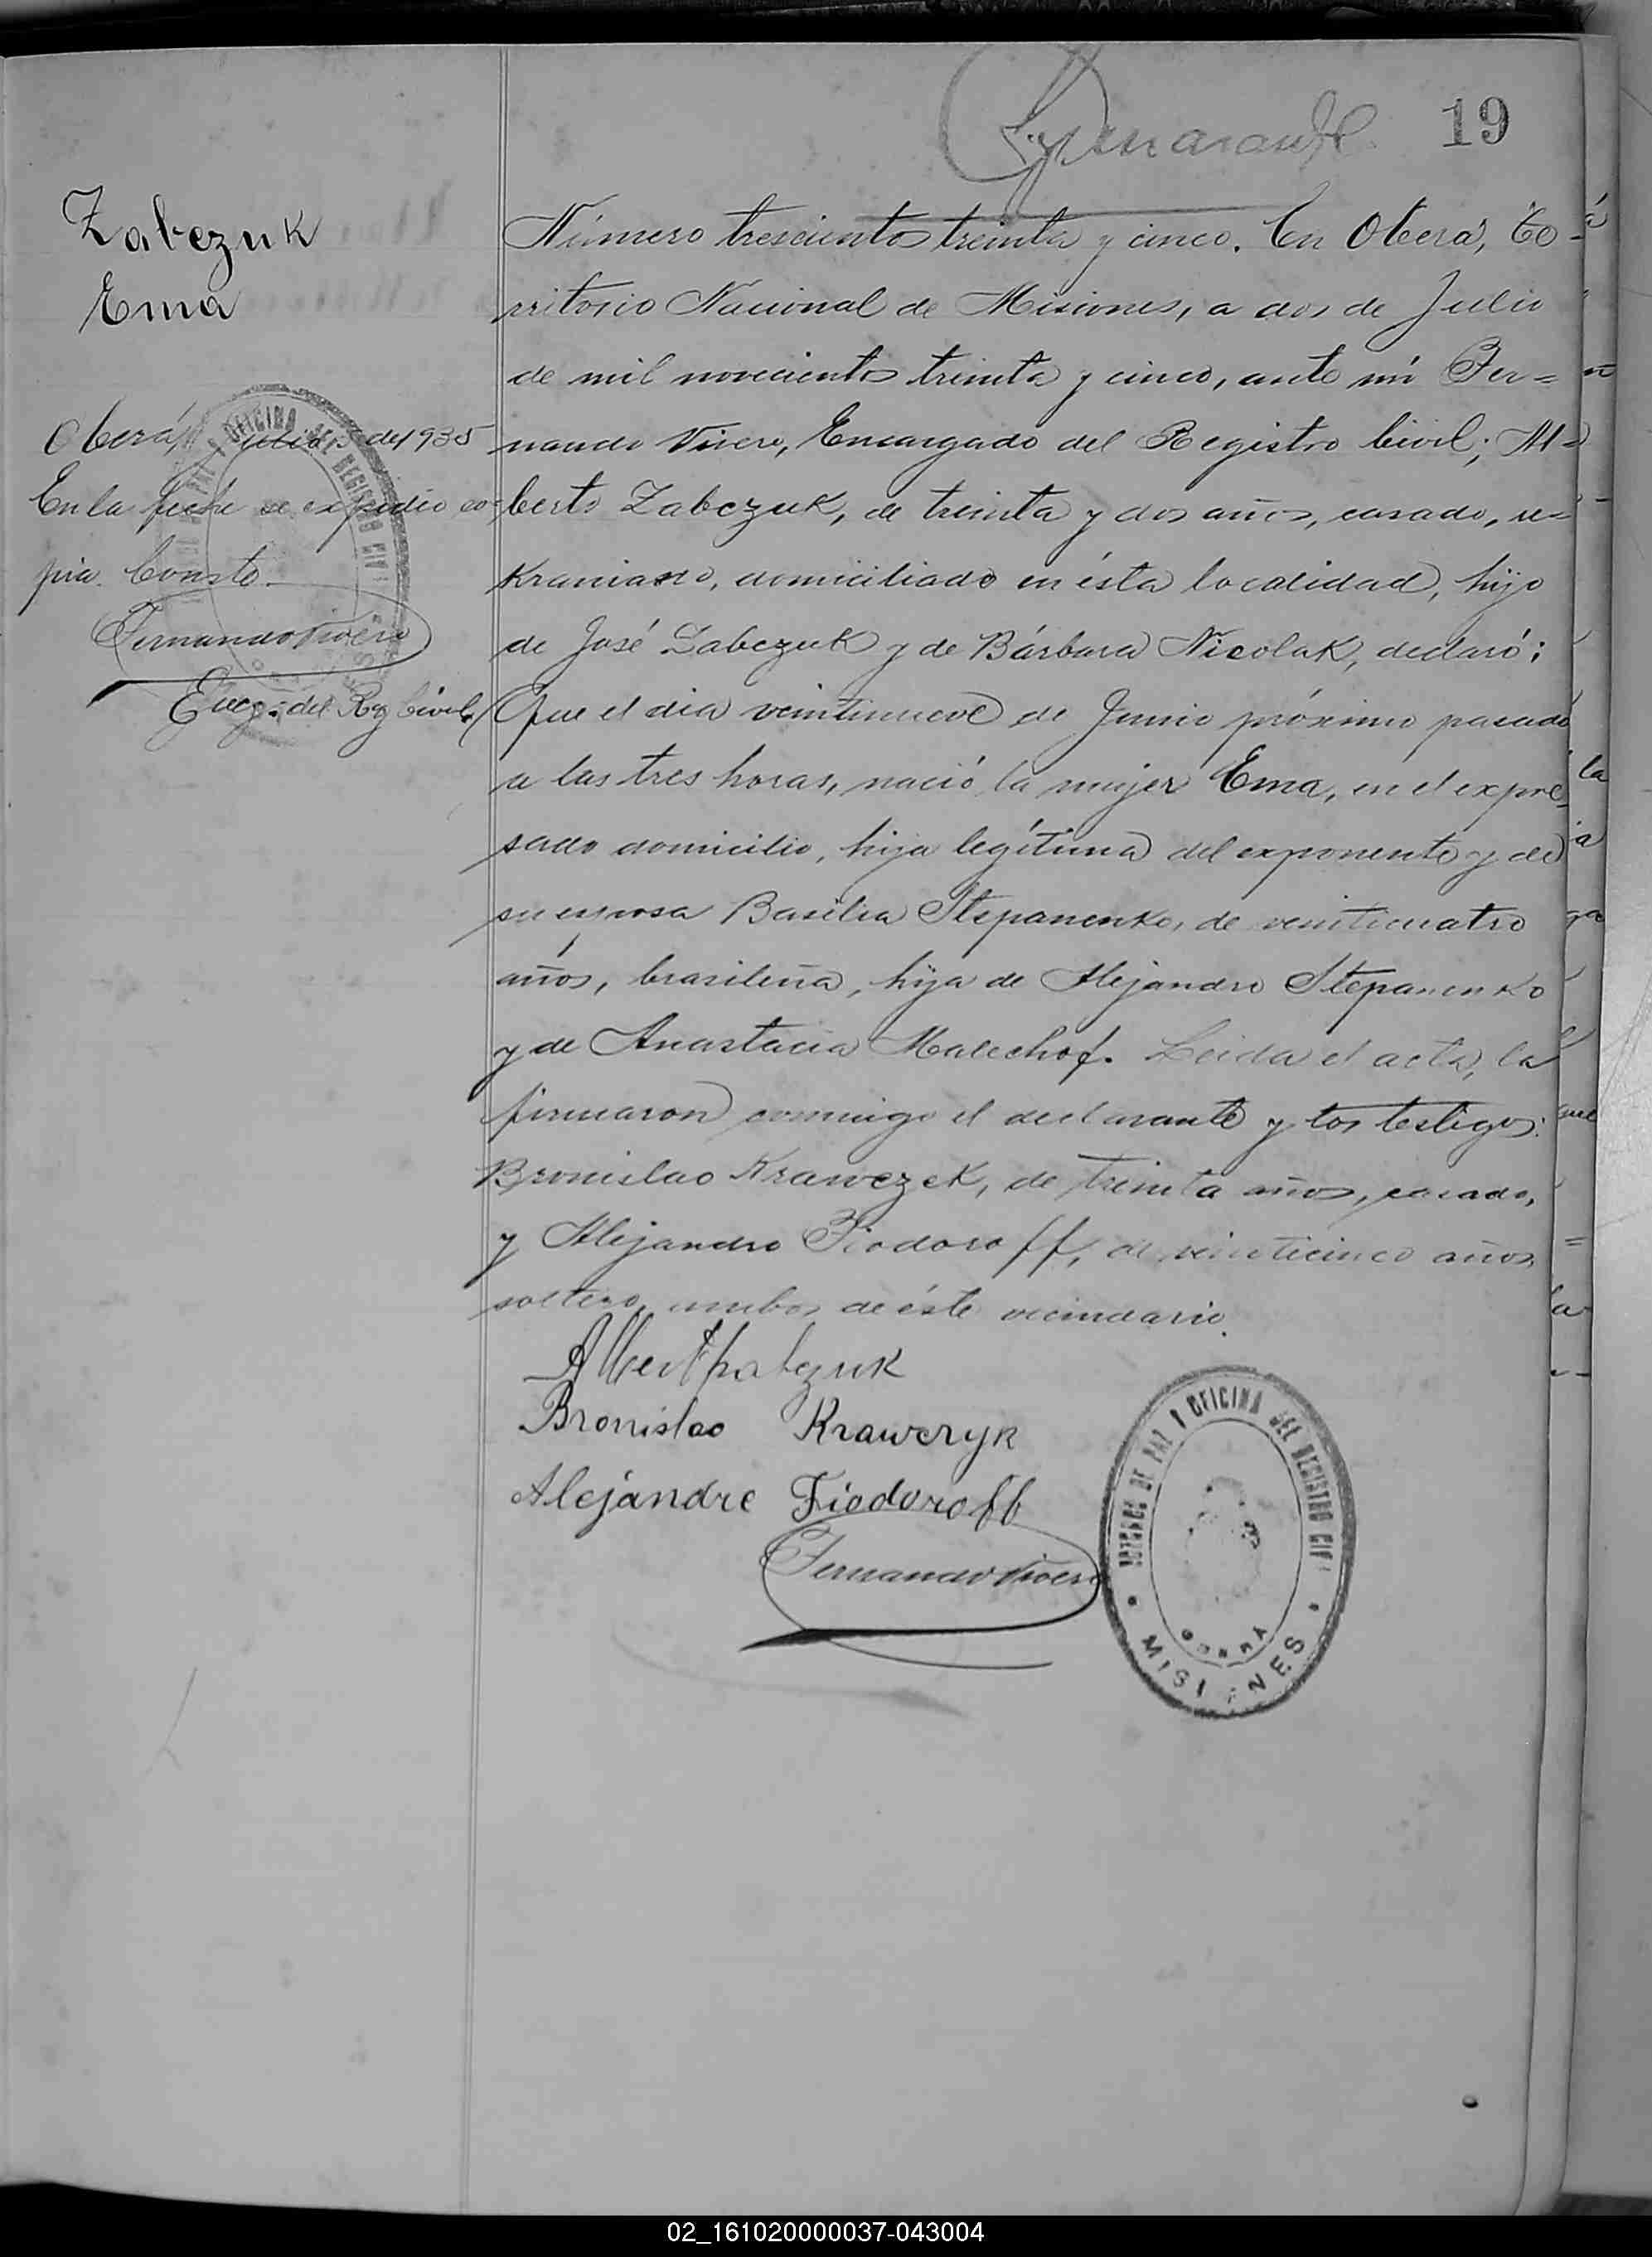 19
Zabczuk
Ema
Oberá, Julio 5 de 1935
En la fecha se expidió co-
pia. Conste.
Fernando Vivero
Encg. del Reg Civil
Número trescientos treinta y cinco. En Oberá, Te-
rritorio Nacional de Misiones, a dos de Julio
de mil novecientos treinta y cinco, ante mí Fer=
nando Vivero, Encargado del Registro Civil; Al=
berto Zabczuk, de treinta y dos años, casado, u=
kraniano, domiciliado en ésta localidad, hijo
de José Zabczuk y de Bárbara Nicolak, declaró:
Que el dia veintinueve de Junio próximo pasado
a las tres horas, nació la mujer Ema, en el expre
sado domicilio, hija legítima del exponente y de
su esposa Basilia Stepanenko, de veinticuatro
años, brasileña, hija de Alejandro Stepanenko
y de Anastacia Malechof. Leida el acta, la
firmaron conmigo el declarante y los testigos:
Bronislao Krawczek, de treinta años, casado,
y Alejandro Fiodoroff, de veinticinco años,
soltero, ambos de éste vecindario.
Albert Zabczuk
Bronislao Krawczyk
Alejandre Fiodoroff
Fernando Vivero
DE PAZ Y OFICINA DEL REGISTRO CIVI
OBERÁ
MISIONES
02_161020000037-043004